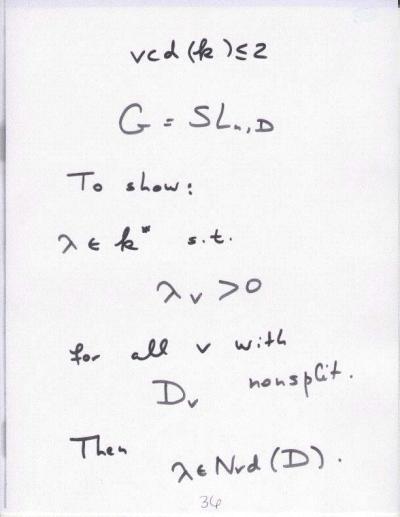 vcd (k) ≤ 2
G = SLₙ,D
To show:
λ ∈ k* s.t.
λᵥ > 0
for all v with
Dᵥ nonsplit.
Then
λ ∈ Nrd (D).
34